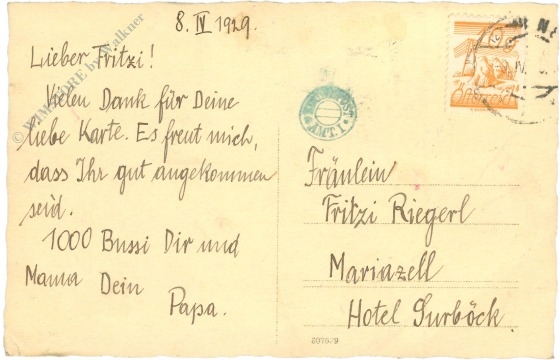 8. IV 1929.
Lieber Fritzi!
Vielen Dank für Deine
liebe Karte. Es freut mich,
dass Ihr gut angekommen
seid.
1000 Bussi Dir und
Mama Dein
Papa.
Fräulein
Fritzi Riegerl
Mariazell
Hotel Surböck.
© WIMSTORE by Walkner
AMT. I